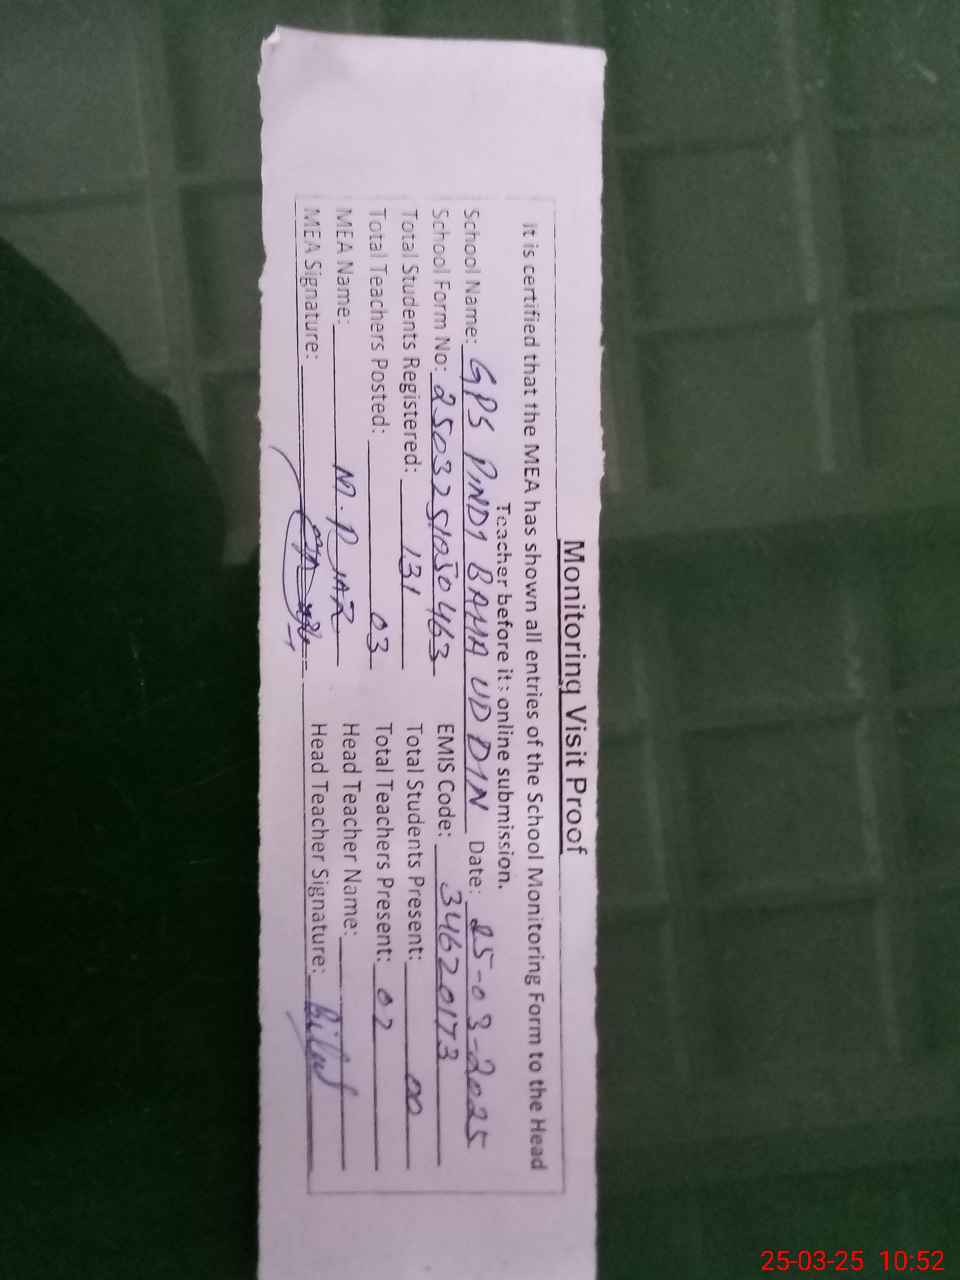 Monitoring Visit Proof
It is certified that the MEA has shown all entries of the School Monitoring Form to the Head
Teacher before its online submission.
School Name: GPS PINDI BAHA UD DIN Date: 25-03-2025
School Form No: EMIS Code: 34620173
Total Students Registered: 131 Total Students Present: 00
Total Teachers Posted: 03 Total Teachers Present: 02
MEA Name: Head Teacher Name:
MEA Signature: Head Teacher Signature:
25-03-25 10:52